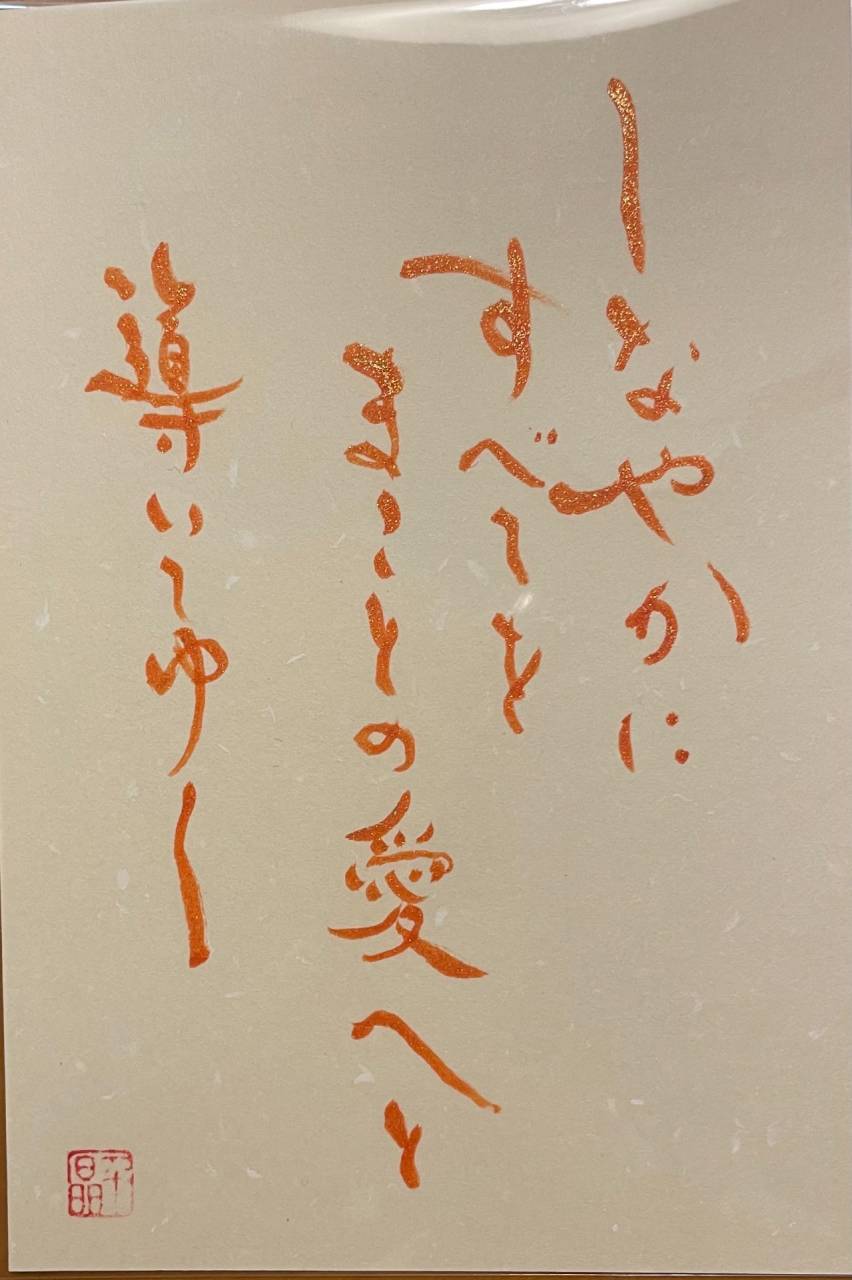 しなやかに
すべてを
まことの愛へと
導いてゆく